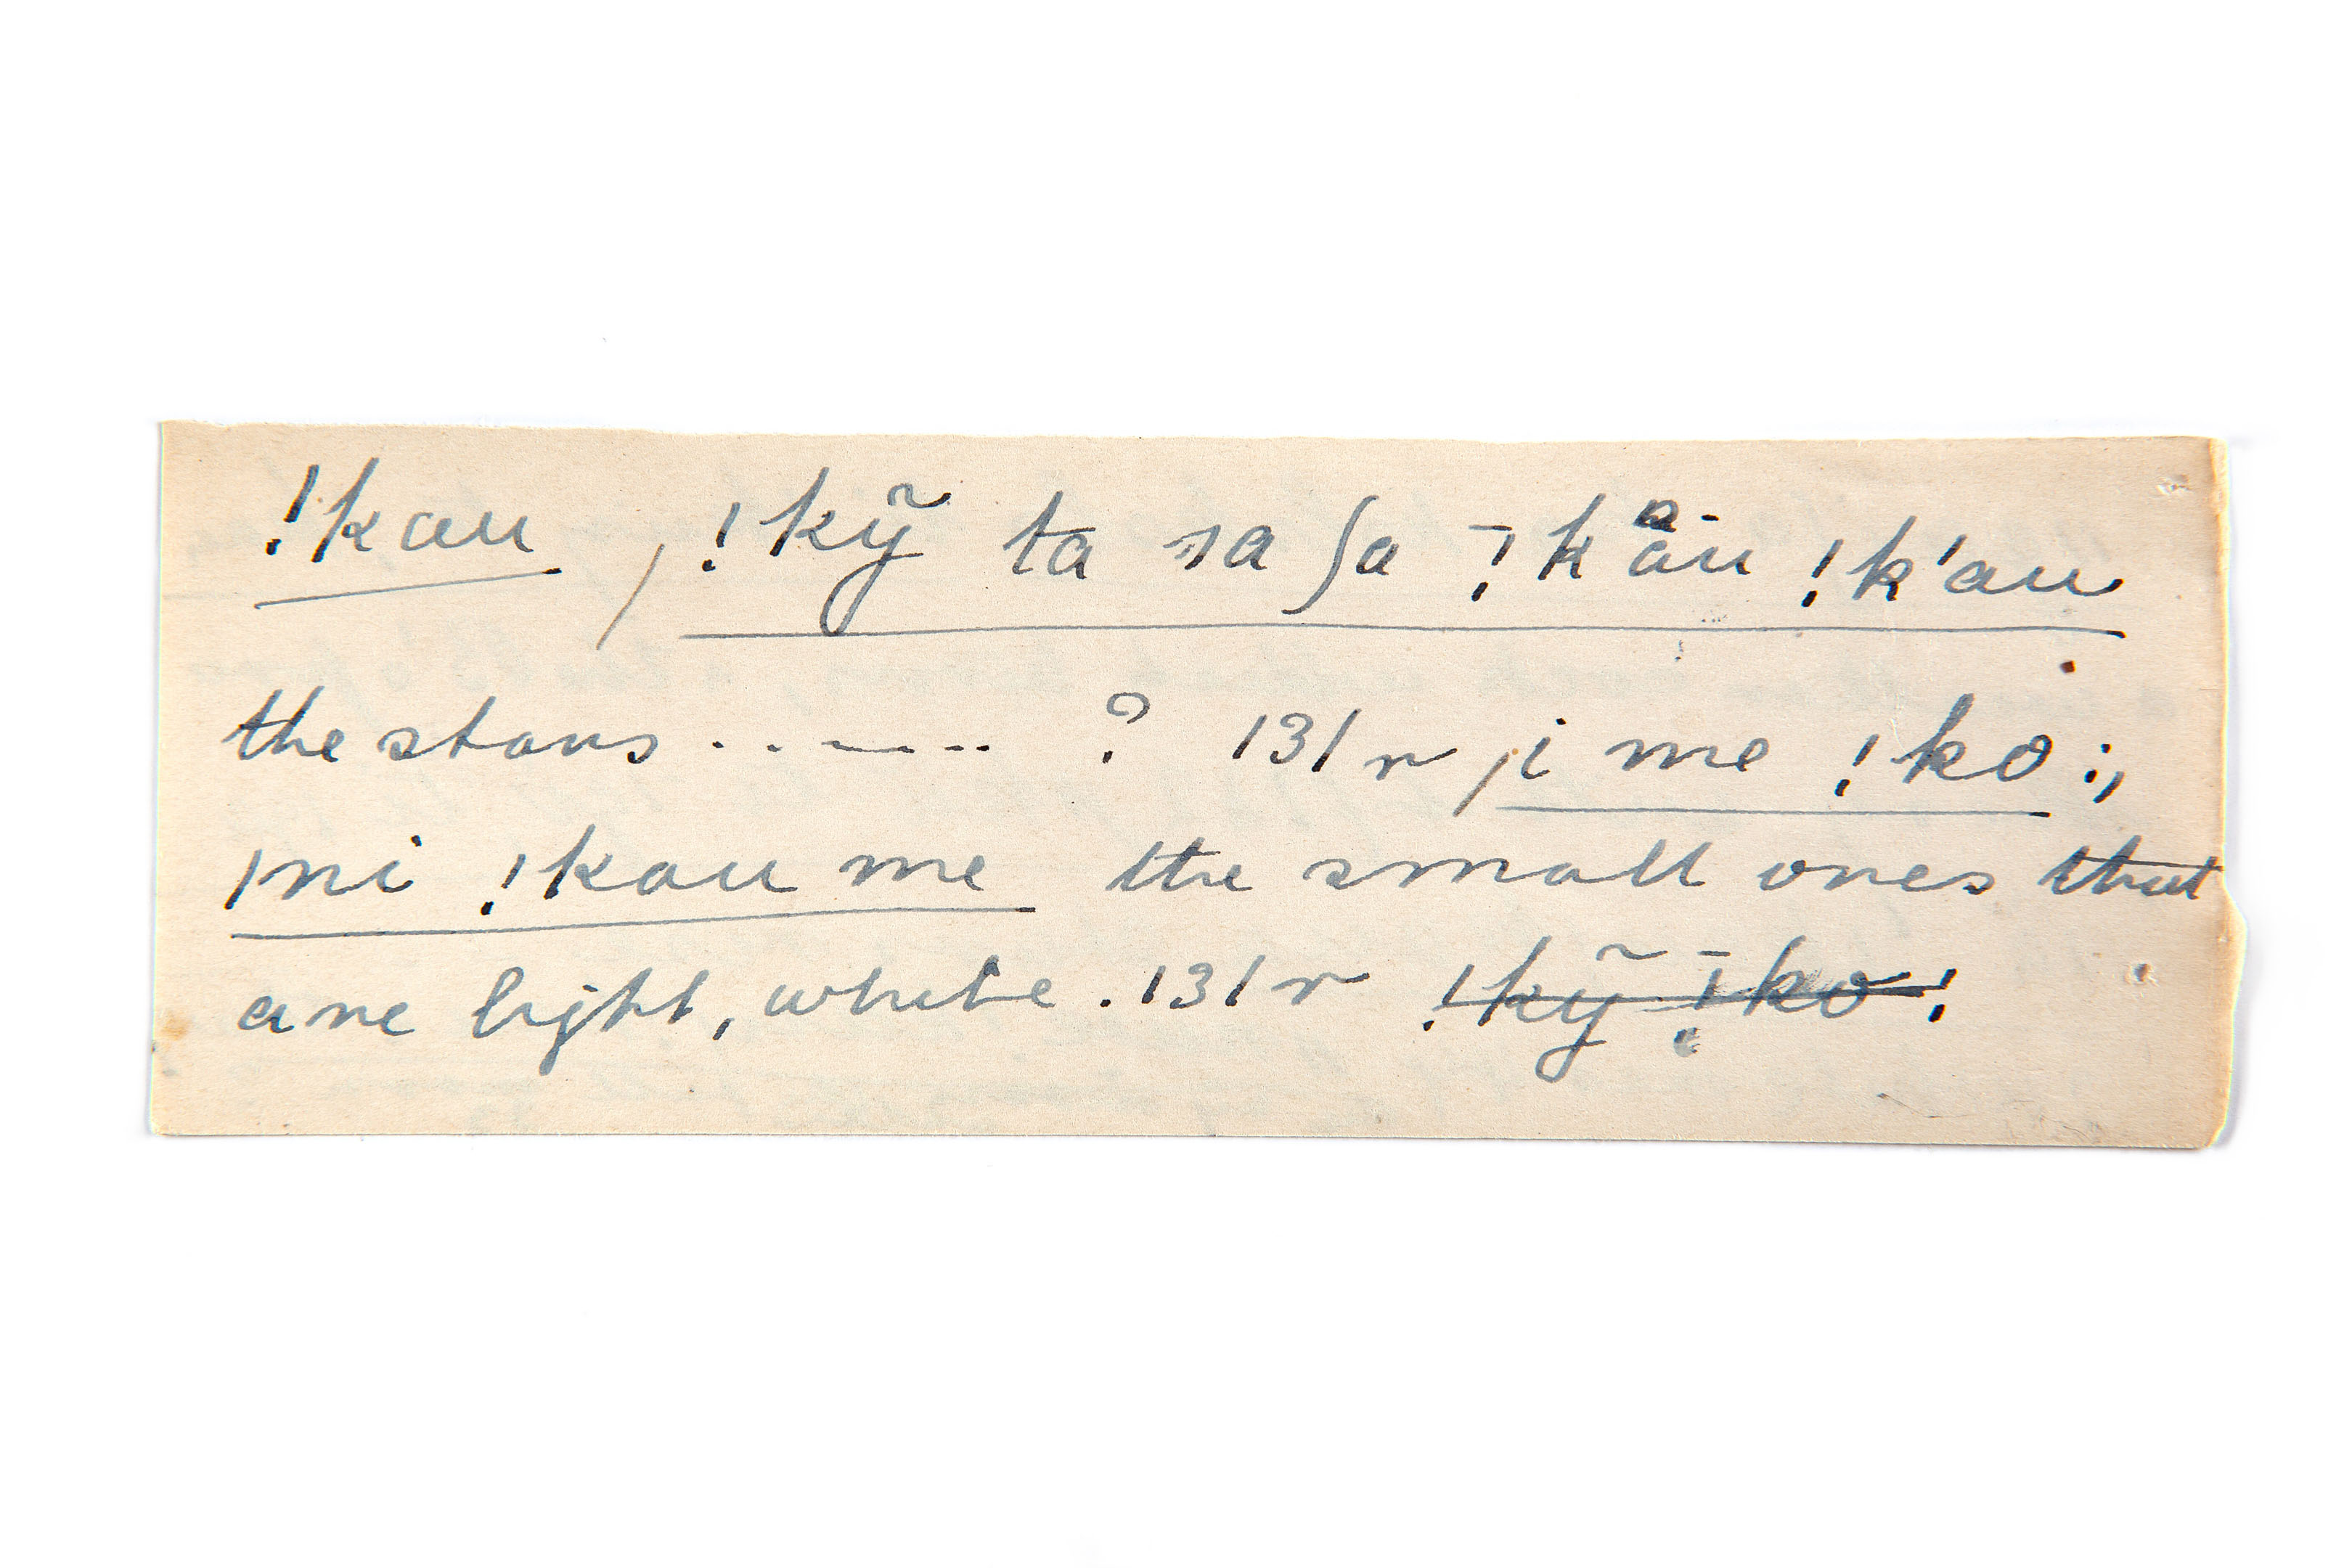 !kau, !kỹ ta sa ʃa !̄kãu !k'au
the stars . . - - - . . ? 131 r, i me !ko;,
ıni !kau me the small ones that
are light, white. 131 r !kỹ !̄ko!